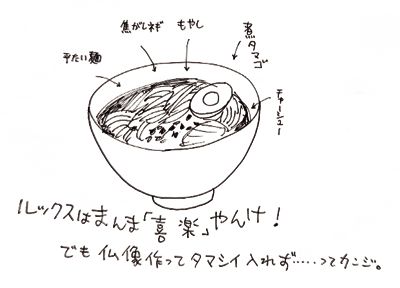 平たい麺
焦がしネギ
もやし
煮タマゴ
チャーシュー
ルックスはまんま「喜楽」やんけ!
でも仏像作ってタマシイ入れず……ってカンジ。